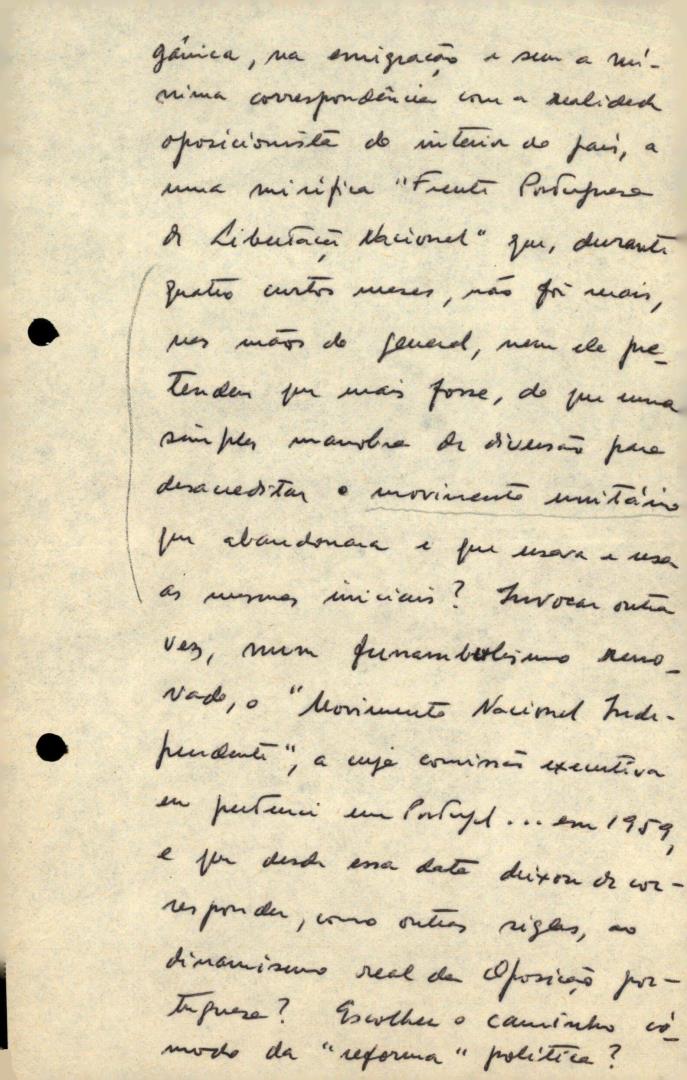 gânica, na emigração e sem a mí-
nima correspondência com a realidade
oposicionista do interior do país, a
uma mirífica "Frente Portuguesa
de Libertação Nacional" que, durante
quatro curtos meses, não foi mais,
nas mãos do general, nem ele pre-
tendeu que mais fosse, do que uma
simples manobra de diversão para
desacreditar o movimento unitário
que abandonara e que usava e usa
as mesmas iniciais? Invocar outra
vez, num funambulismo reno-
vado, o "Movimento Nacional Inde-
pendente", a cuja comissão executiva
eu pertenci em Portugal... em 1959,
e que desde essa data deixou de cor-
responder, como outras siglas, ao
dinamismo real da Oposição por-
tuguesa? Escolher o caminho có-
modo da "reforma" política?